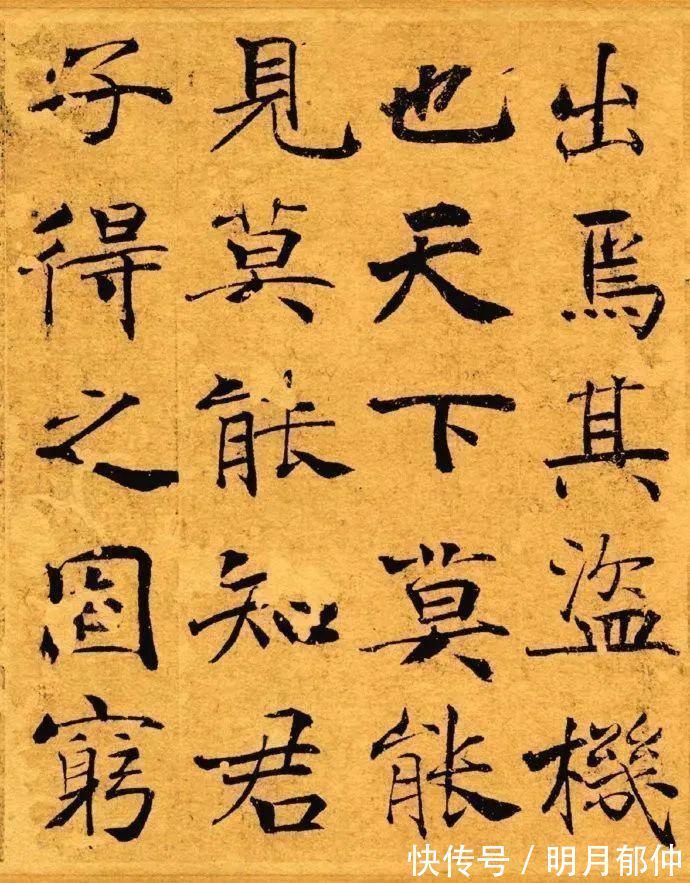 出焉其盜機
也天下莫能
見莫能知君
子得之固窮
快传号 / 明月郁仲